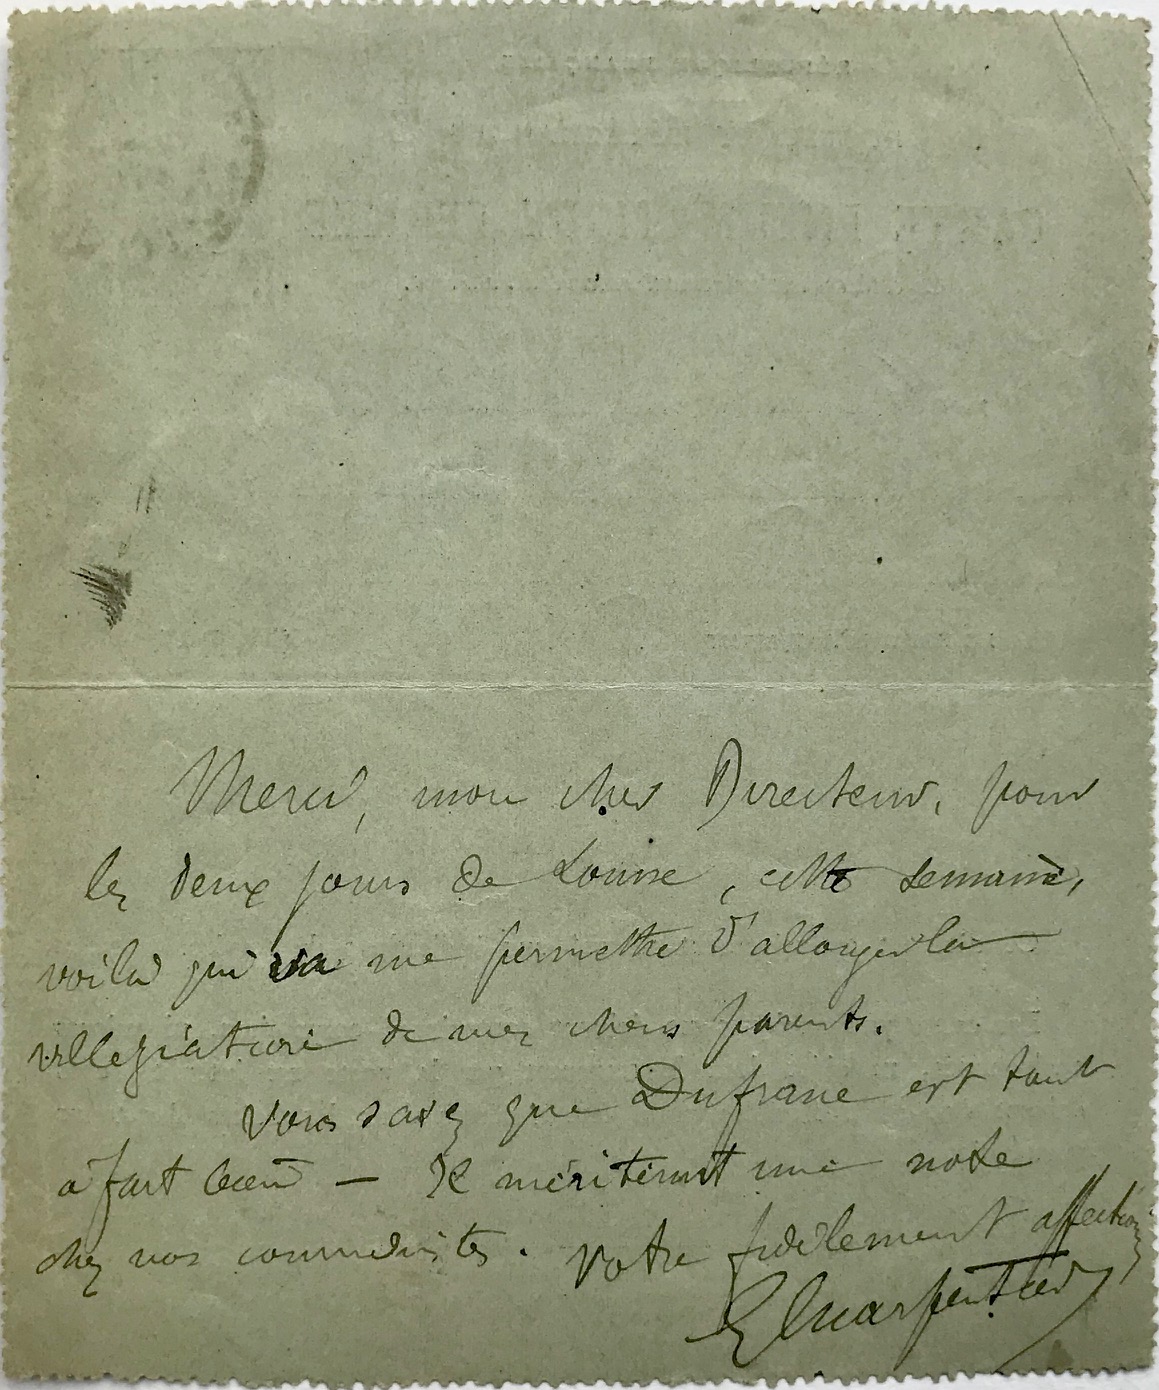 Merci, mon cher Directeur, pour
les deux jours de Louise, cette semaine,
voilà qui va me permettre d'allonger la
villegiature de mes chers parents.
Vous savez que Dufrane est tout
à fait bien — Il mériterait une note
chez vos courriéristes. Votre fidèlement affectionné
G Charpentier